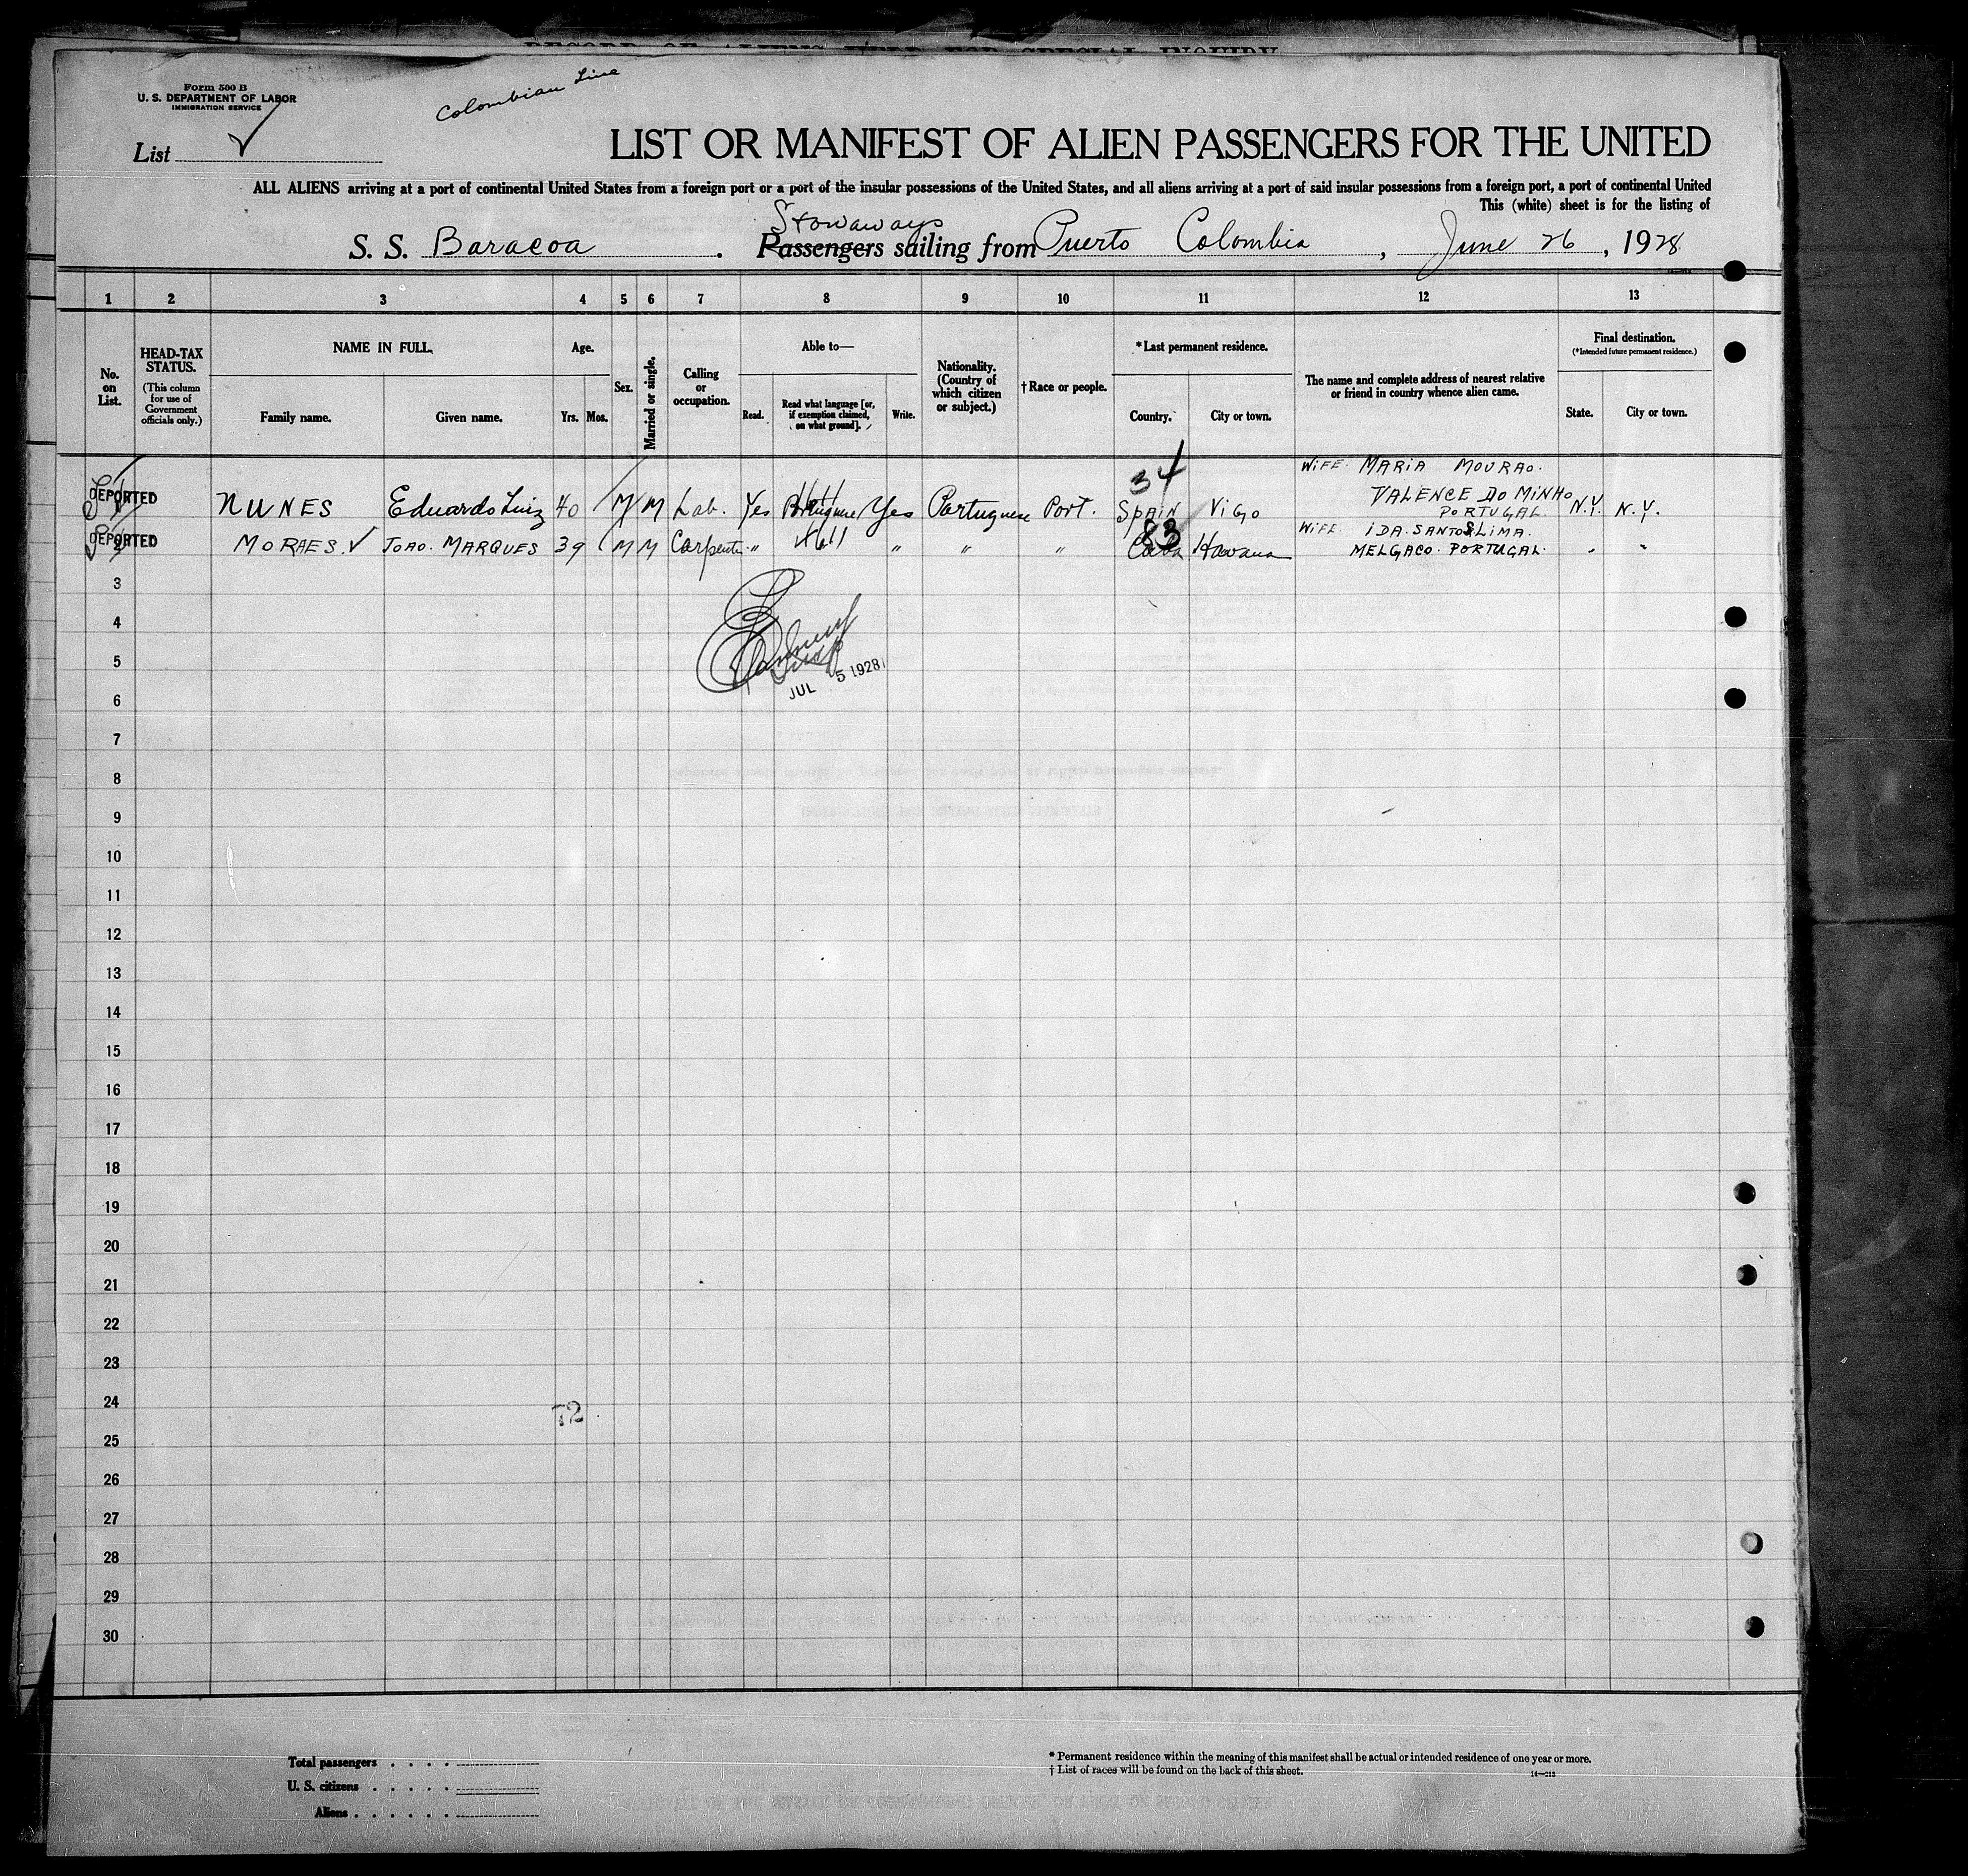 RECORD OF ALIENS HELD FOR SPECIAL INQUIRY
Form 500 B
U. S. DEPARTMENT OF LABOR
IMMIGRATION SERVICE
Colombian Line
List
LIST OR MANIFEST OF ALIEN PASSENGERS FOR THE UNITED
ALL ALIENS arriving at a port of continental United States from a foreign port or a port of the insular possessions of the United States, and all aliens arriving at a port of said insular possessions from a foreign port, a port of continental United
This (white) sheet is for the listing of
Stowaways
S. S. Baracoa . Passengers sailing from Puerto Colombia , June 26 , 1928
1 2 3 4 5 6 7 8 9 10 11 12 13
No. on List.
HEAD-TAX STATUS.
(This column for use of Government officials only.)
NAME IN FULL.
Family name. Given name.
Age.
Yrs. Mos.
Sex.
Married or single.
Calling or occupation.
Able to—
Read. Read what language [or, if exemption claimed, on what ground]. Write.
Nationality. (Country of which citizen or subject.)
† Race or people.
* Last permanent residence.
Country. City or town.
The name and complete address of nearest relative or friend in country whence alien came.
Final destination.
(*Intended future permanent residence.)
State. City or town.
34
WIFE. MARIA MOURAO.
VALENCE DO MINHO
DEPORTED NUNES Eduardo Luiz 40 M M Lab. Yes Portuguese Yes Portuguese Port. SPAIN ViGo PORTUGAL. N.Y. N.Y.
83
WIFE IDA. SANTOS LIMA.
DEPORTED MORAES. JOAO. MARQUES 39 M M Carpenter " " " " Cuba Havana MELGACO. PORTUGAL. " "
3
4
5
JUL 5 1928
6
7
8
9
10
11
12
13
14
15
16
17
18
19
20
21
22
23
24
72
25
26
27
28
29
30
Total passengers
U. S. citizens
Aliens
* Permanent residence within the meaning of this manifest shall be actual or intended residence of one year or more.
† List of races will be found on the back of this sheet.
14—213